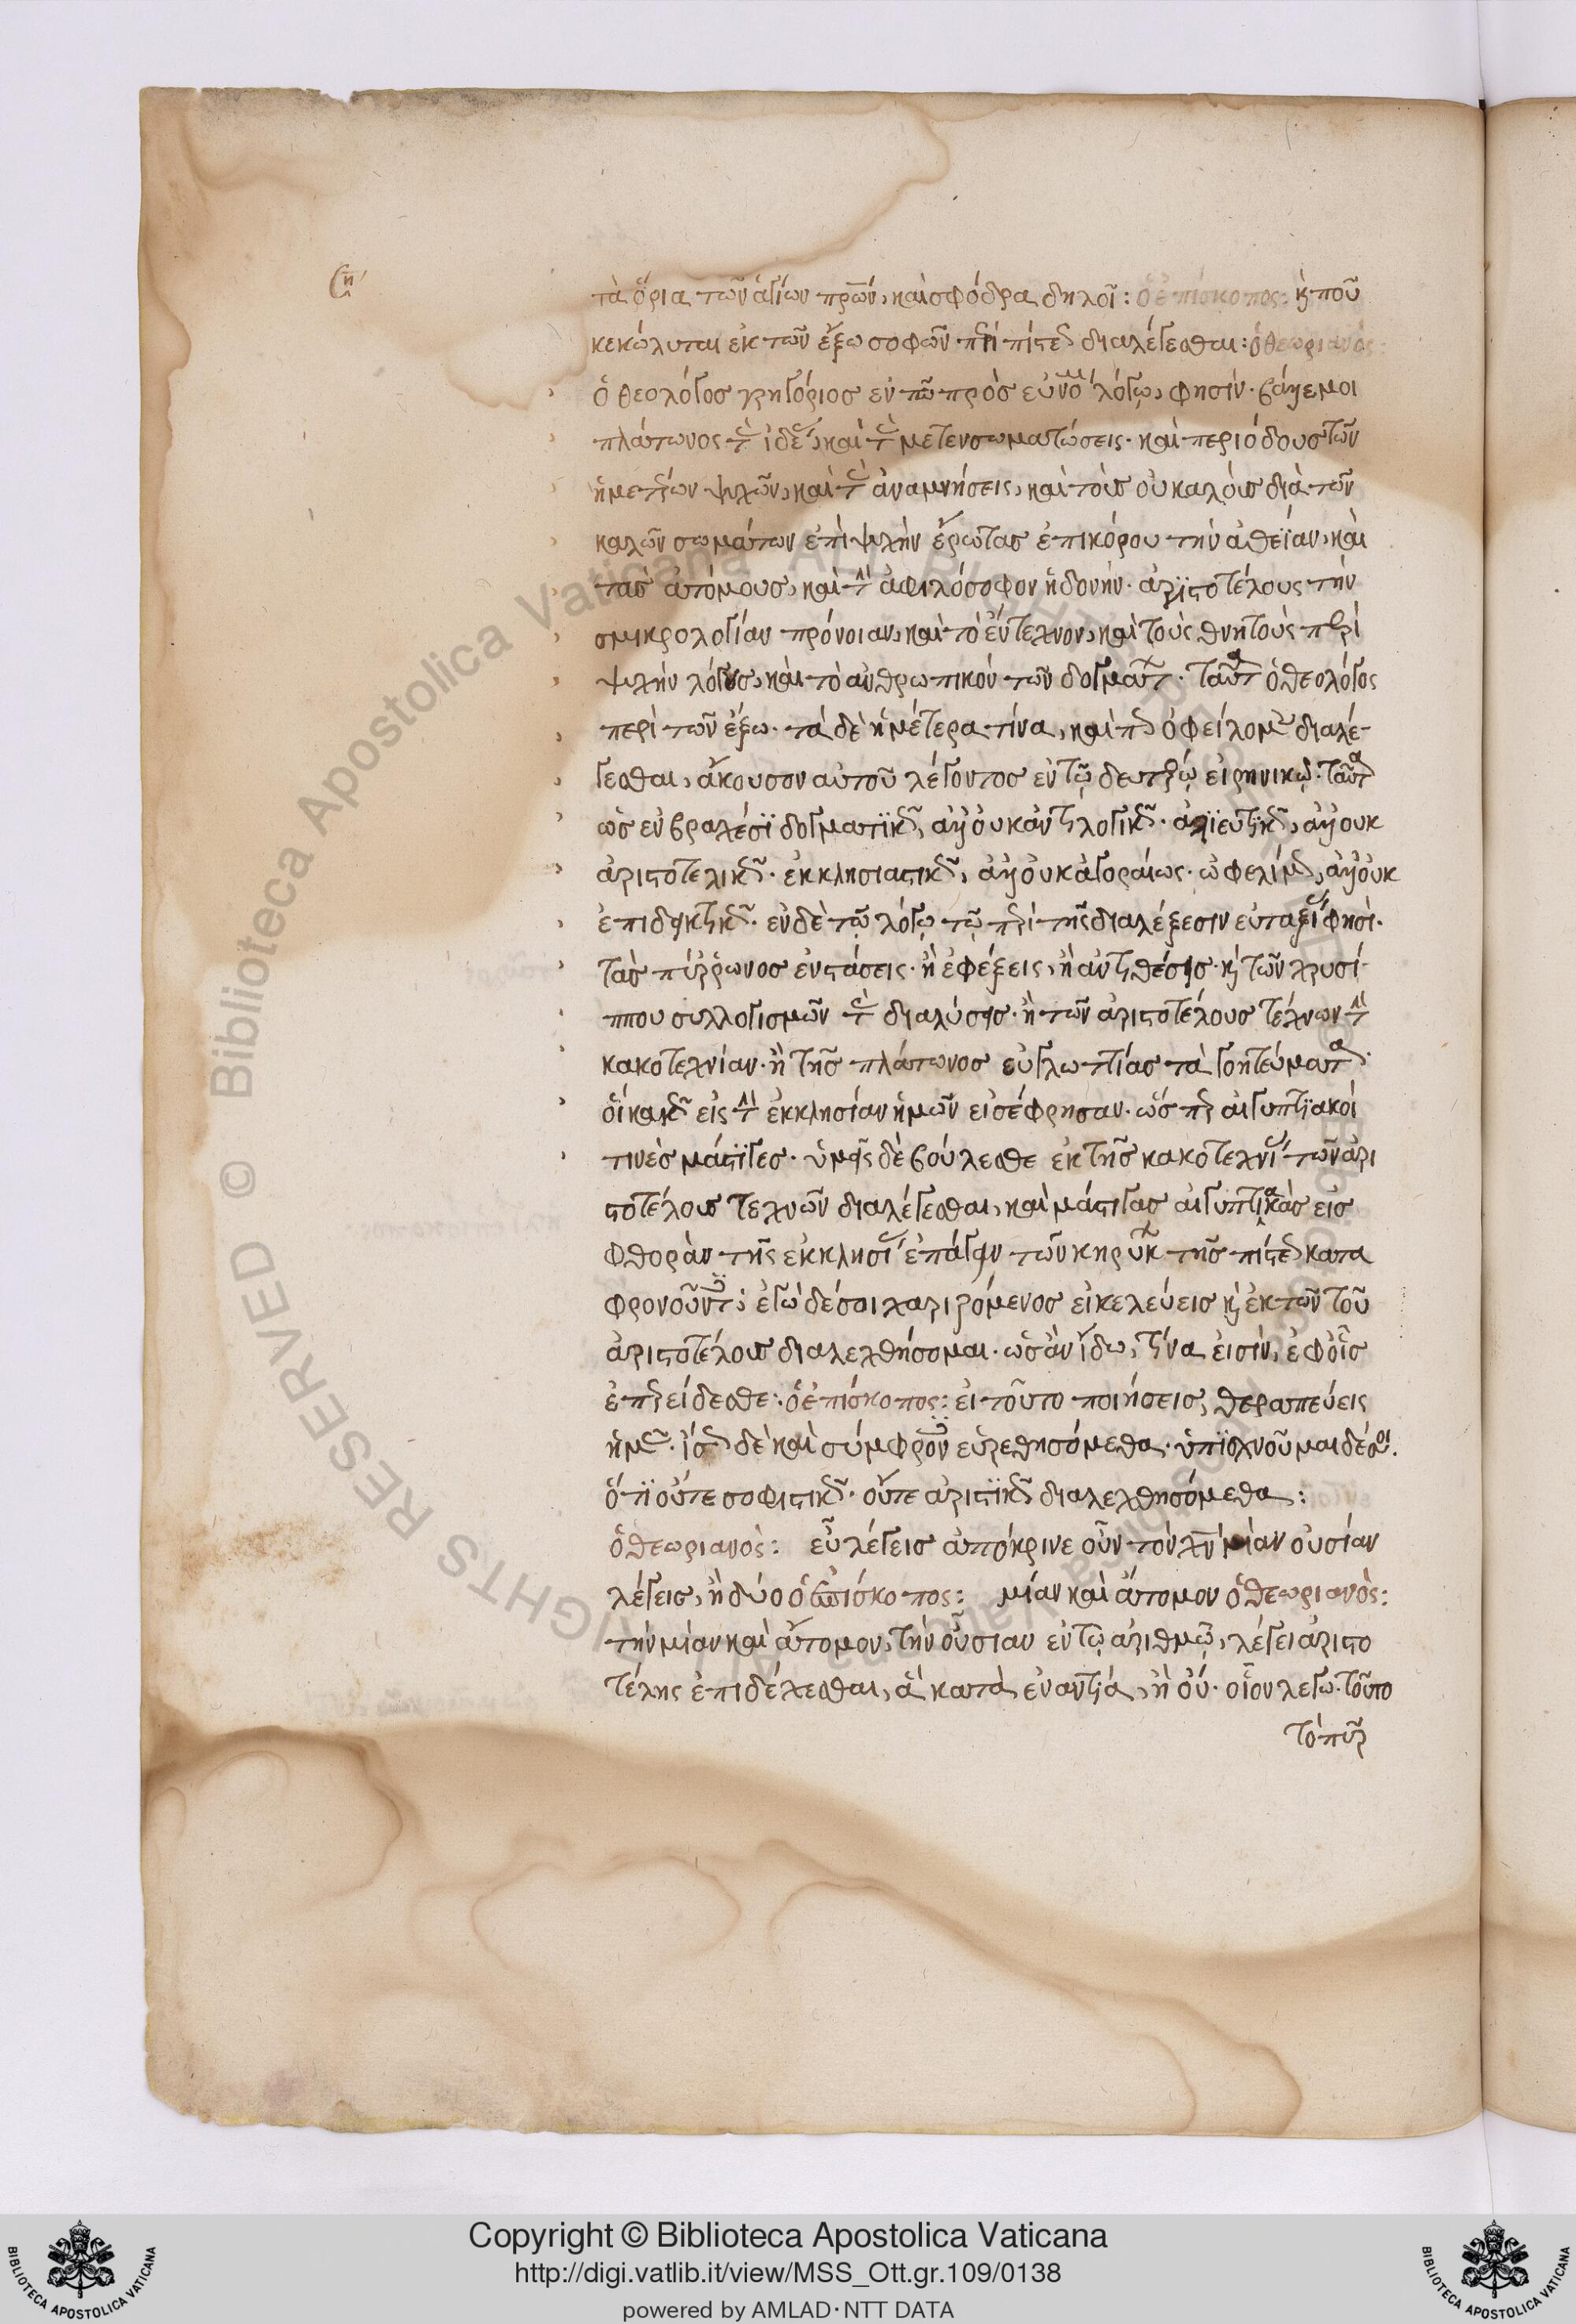 τὰ ὅρια τῶν ἁγίων πρων, καὶ σφόδρα δηλοῖ: ὁ ἐπίσκοπος: κ που
κεκώλυται ἐκ τῶν ἔξω σοφῶν περὶ πίστεως διαλέγεσθαι: ὁ θεωριανός:
ὁ θεολόγος γρηγόριος ἐν τῶ πρὸς εὐνομ λόγω, φησίν. βάλλέ μοι
πλάτωνος τὰς ἰδέας, καὶ τὰς μετενσωματώσεις. καὶ περιόδους τῶν
ἡμετέρων ψχῶν, καὶ τὰς ἀναμνήσεις, καὶ τοὺς οὐ καλοὺς διὰ τῶν
καλῶν σωμάτων ἐπὶ ψχὴν ἔρωτας ἐπικούρου τὴν ἀθεΐαν, καὶ
τὰς ἀτόμους, καὶ τὴν ἀφιλόσοφον ἡδονήν. ἀριϊστοτέλους τὴν
σμικρολογίαν πρόνοιαν, καὶ τὸ ἔντεχνον, καὶ τοὺς θνητοὺς περὶ
ψχὴν λόγους, καὶ τὸ ἀνθρωπικὸν τῶν δογμάτων. ταῦτα ὁ θεολόγος
περὶ τῶν ἔξω. τὰ δὲ ἡμέτερα τίνα, καὶ πῶς ὀφείλομεν διαλέ-
γεσθαι, ἄκουσον αὐτοῦ λέγοντος ἐν τῷ δευτέρῳ εἰρηνικῷ. ταῦτα
ὡς ἐν βραχέσϊ δογματϊκῶς, ἀλλ' οὐκ ἀντιλογικῶς. ἁλϊευτϊκῶς, ἀλλ' οὐκ
ἀριστοτελικῶς. ἐκκλησιαστικῶς, ἀλλ' οὐκ ἀγοραίως. ὠφελίμως, ἀλλ' οὐκ
ἐπιδεικτικῶς. ἐν δὲ τῷ λόγω τῷ περὶ τῆς διαλέξεσιν εὐταξίας φησί.
τὰς πύρρωνος ἐνστάσεις. ἢ ἐφέξεις, ἢ ἀντιθέσεις. κ τῶν χρυσί-
ππου συλλογισμῶν τὰς διαλύσεις. ἢ τῶν ἀριστοτέλους τέχνων τὴν
κακοτεχνίαν. ἢ τῆς πλάτωνος εὐγλωττίας τὰ γοητεύματα.
οἳ κακῶς εἰς τὴν ἐκκλησίαν ἡμῶν εἰσέφρησαν. ὥσπερ αἰγυπτϊακοί
τινὲς μάστϊγες. ὑμεῖς δὲ βούλεσθε ἐκ τῆς κακοτεχνίας τῶν ἀρι
στοτέλους τεχνῶν διαλέγεσθαι, καὶ μάστιγας αἰγυπτιακὰς εἰς
φθορὰν τῆς ἐκκλησίας ἐπάγειν τῶν κηρύκων τῆς πίστεως κατα
φρονοῦντες; ἐγὼ δέ σοι χαριζόμενος εἰ κελεύεις κ ἐκ τῶν τοῦ
ἀριστοτέλους διαλεχθήσομαι. ὡς ἂν ἴδω, τίνα εἰσίν, ἐφ' οἷς
ἐπερείδεσθε: ὁ ἐπίσκοπος: εἰ τοῦτο ποιήσεις, θεραπεύεις
ἡμᾶς. ἴσως δὲ καὶ σύμφρονες εὑρεθησόμεθα. ὑπϊσχνοῦμαι δέ σοι.
ὅτϊ οὔτε σοφιστικῶς. οὔτε ἐριστϊκῶς διαλεχθησόμεθα:
ὁ θεωριανὸς: εὖ λέγεις ἀπόκρινε οὖν τὸν χν μίαν οὐσίαν
λέγεις, ἢ δύο ὁ ἐπίσκοπος: μίαν καὶ ἄτομον ὁ θεωριανὸς:
τὴν μίαν καὶ ἄτομον, τὴν οὖσιαν ἐν τῷ ἀριθμῷ, λέγει ἀριστο
τέλης ἐπιδέχεσθαι, ἃ κατὰ ἐναντία, ἢ οὔ. οἷον λέγω. τοῦτο
τὸ πῦρ
Copyright © Biblioteca Apostolica Vaticana
http://digi.vatlib.it/view/MSS_Ott.gr.109/0138
powered by AMLAD·NTT DATA